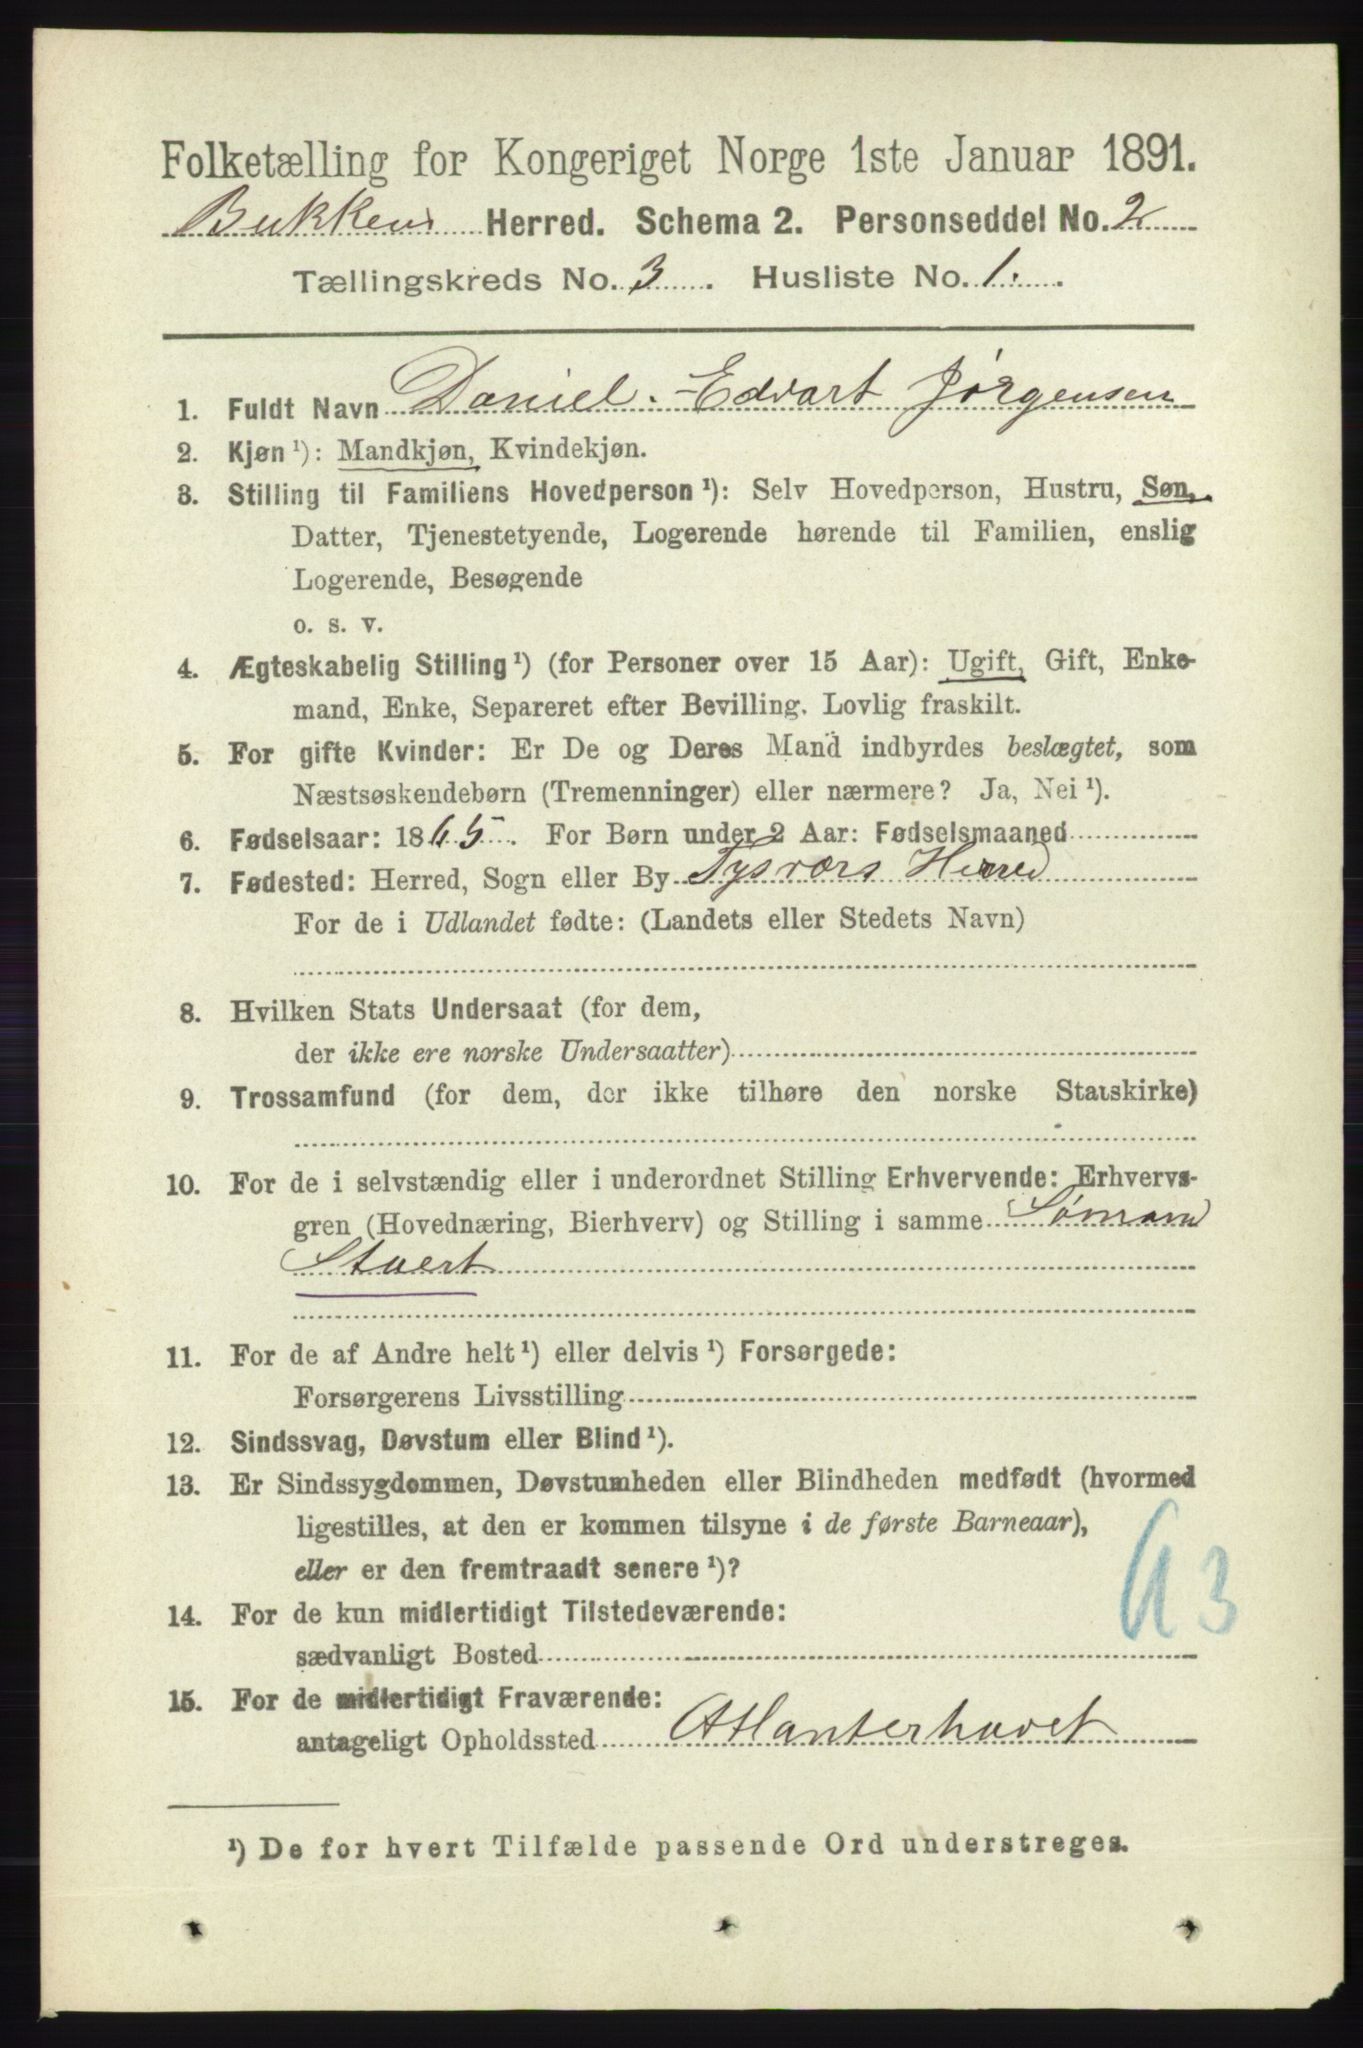 Folketælling for Kongeriget Norge 1ste Januar 1891.
Bukkens Herred. Schema 2. Personseddel No. 2
Tællingskreds No. 3. Husliste No. 1.
1. Fuldt Navn Daniel. Edvart Jørgensen
2. Kjøn ¹): Mandkjøn, Kvindekjøn.
3. Stilling til Familiens Hovedperson ¹): Selv Hovedperson, Hustru, Søn,
Datter, Tjenestetyende, Logerende hørende til Familien, enslig
Logerende, Besøgende
o. s. v.
4. Ægteskabelig Stilling ¹) (for Personer over 15 Aar): Ugift, Gift, Enke-
mand, Enke, Separeret efter Bevilling. Lovlig fraskilt.
5. For gifte Kvinder: Er De og Deres Mand indbyrdes beslægtet, som
Næstsøskendebørn (Tremenninger) eller nærmere? Ja, Nei ¹).
6. Fødselsaar: 1865. For Børn under 2 Aar: Fødselsmaaned
7. Fødested: Herred, Sogn eller By Tysværs Herred
For de i Udlandet fødte: (Landets eller Stedets Navn)
8. Hvilken Stats Undersaat (for dem,
der ikke ere norske Undersaatter)
9. Trossamfund (for dem, der ikke tilhøre den norske Statskirke)
10. For de i selvstændig eller i underordnet Stilling Erhvervende: Erhvervs-
gren (Hovednæring, Bierhverv) og Stilling i samme Sømand
Stuert
11. For de af Andre helt ¹) eller delvis ¹) Forsørgede:
Forsørgerens Livsstilling
12. Sindssvag, Døvstum eller Blind ¹).
13. Er Sindssygdommen, Døvstumheden eller Blindheden medfødt (hvormed
ligestilles, at den er kommen tilsyne i de første Barneaar),
eller er den fremtraadt senere ¹)?
14. For de kun midlertidigt Tilstedeværende:
sædvanligt Bosted
15. For de midlertidigt Fraværende:
antageligt Opholdssted Atlanterhavet
¹) De for hvert Tilfælde passende Ord understreges.